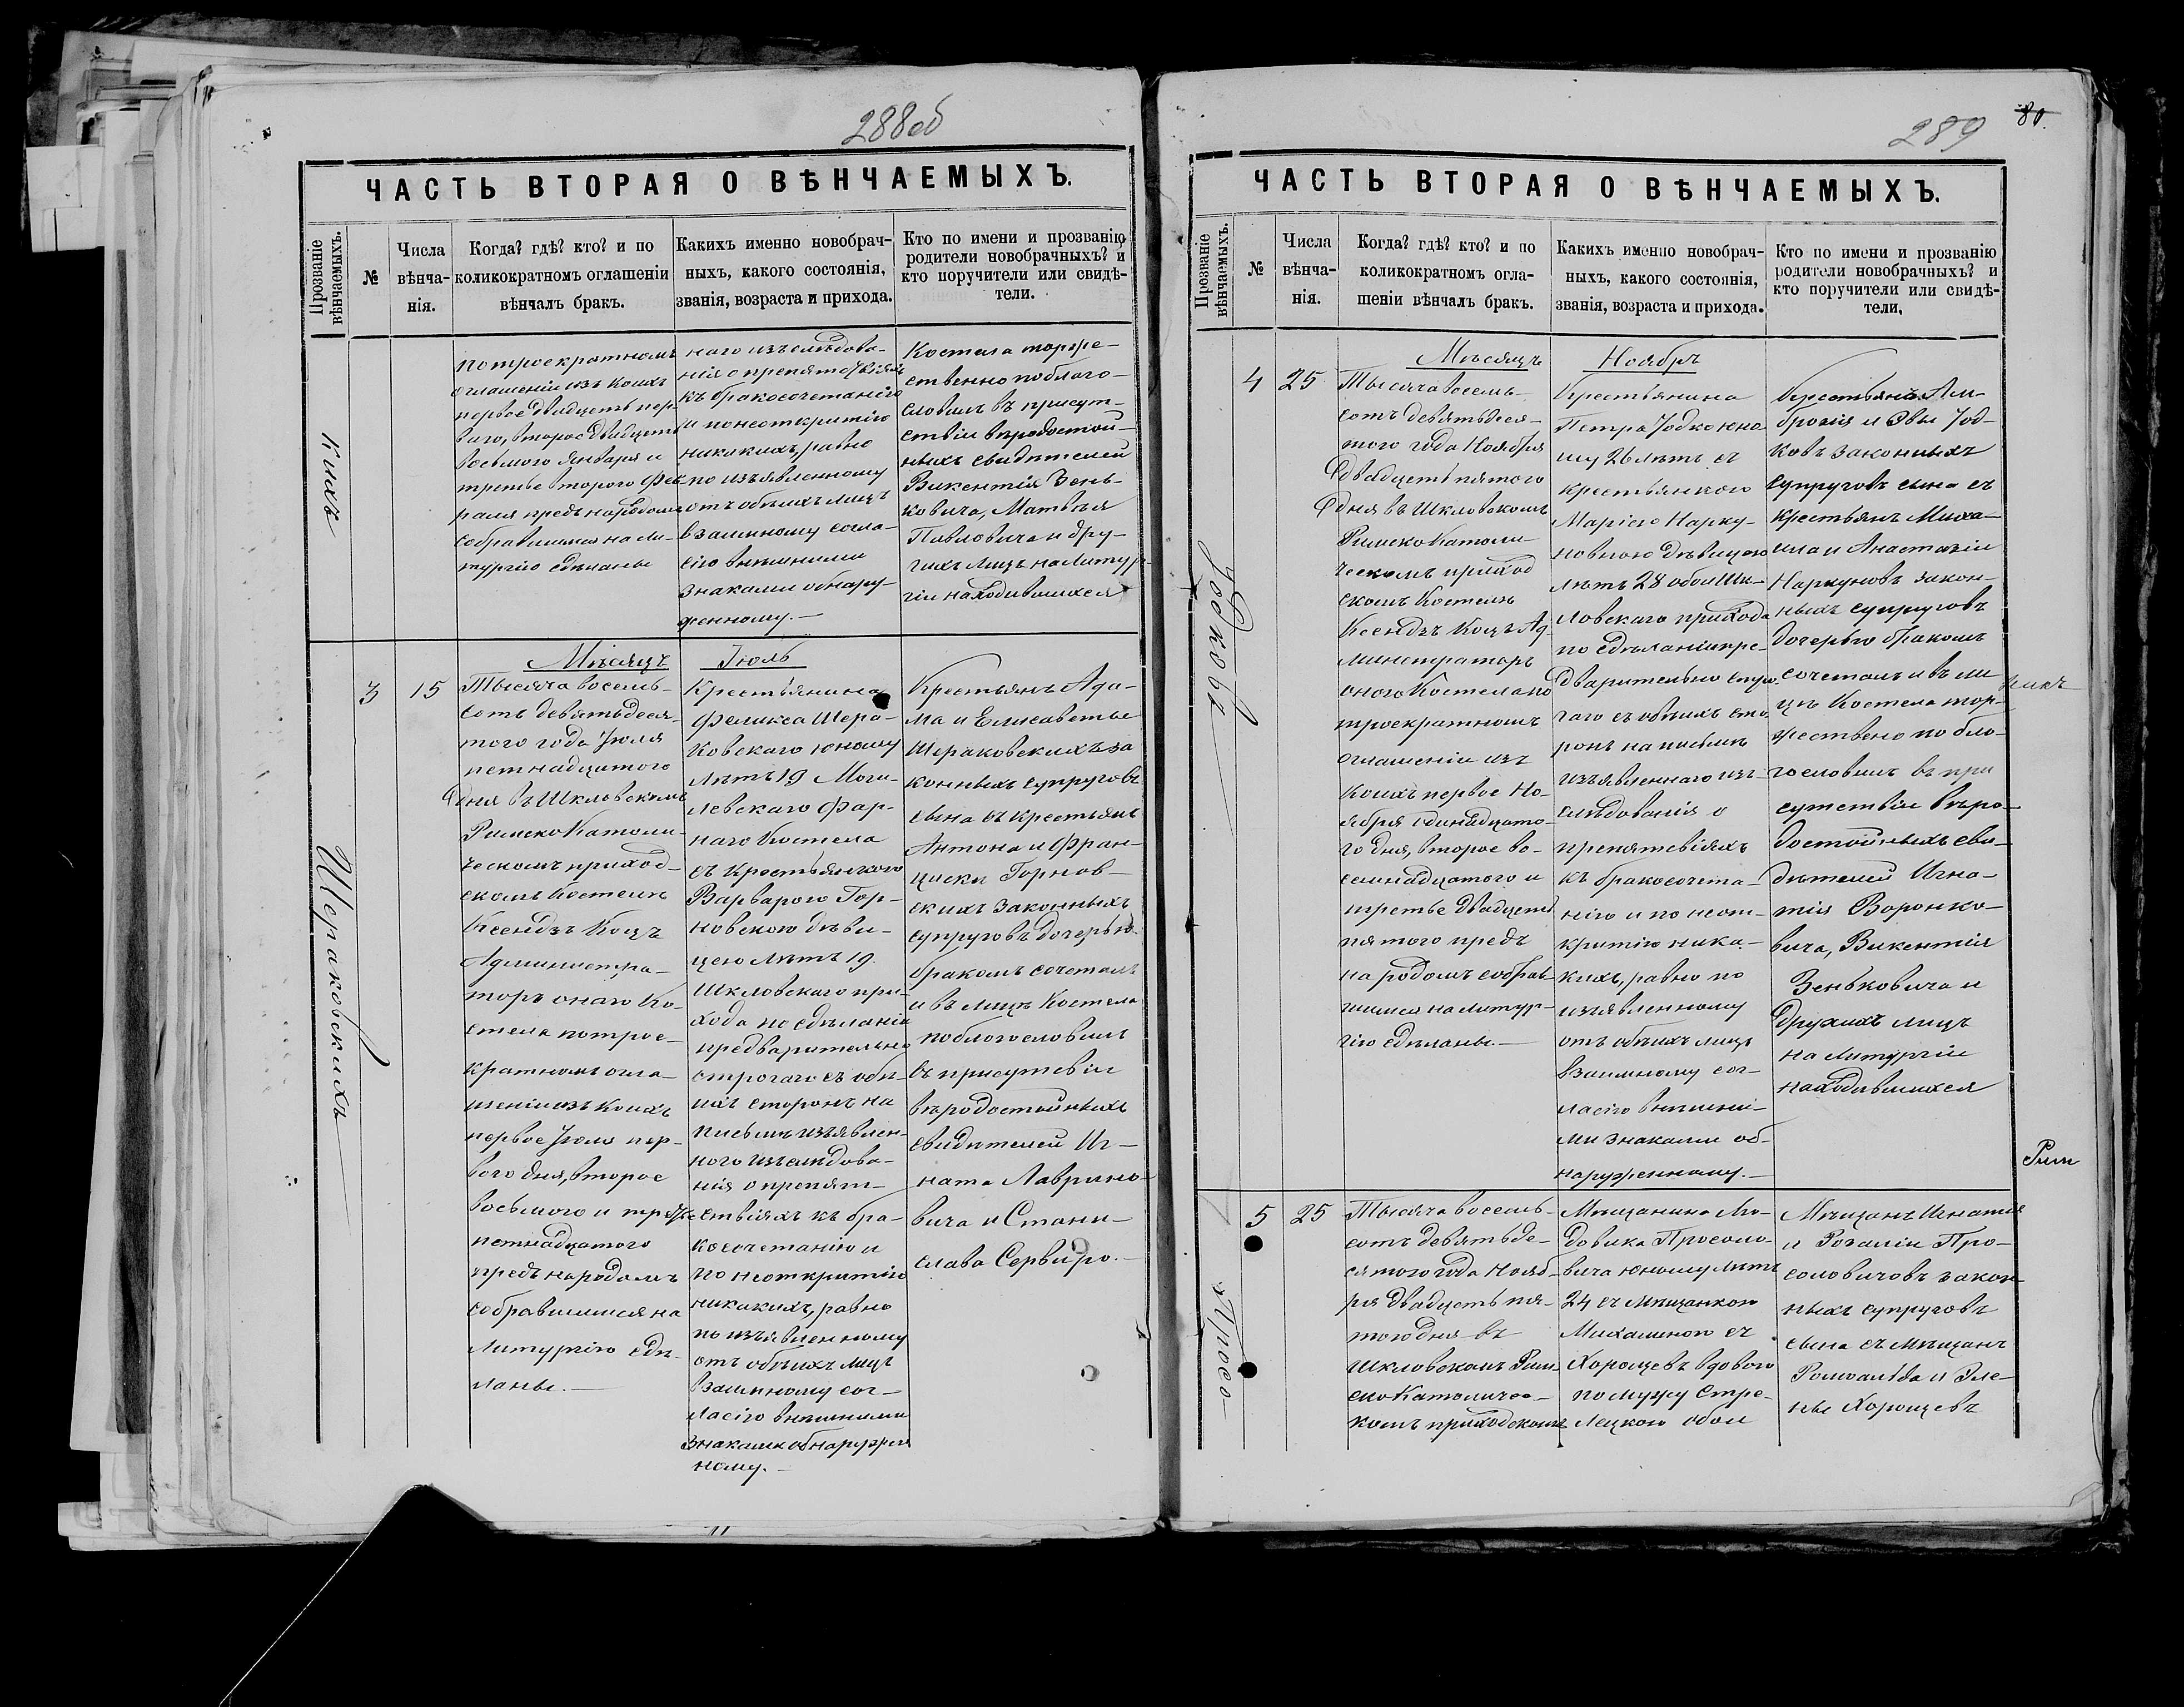 288об
ЧАСТЬ ВТОРАЯ О ВѢНЧАЕМЫХЪ.
Прозваніе
вѣнчаемыхъ.
№
Числа
вѣнча-
нія.
Когда? гдѣ? кто? и по
коликократномъ оглашеніи
вѣнчалъ бракъ.
Какихъ именно новобрач-
ныхъ, какого состоянія,
званія, возраста и прихода.
Кто по имени и прозванію
родители новобрачныхъ? и
кто поручители или свидѣ-
тели.
потроекратномъ
оглашеніи изъ коихъ
первое двадцать пер-
ваго, второе двадцать
восьмого Января и
третье второго Фев-
раля предъ народомъ
собравшимся на Ли-
тургію сдѣланы
наго изъслѣдова-
нія о препятствіяхъ
къ бракосочетанію
и понеоткритію
никакихъ, равно
по изъявленному
отъ обѣихъ лицъ
взаимному согла-
сію внѣшними
знаками обнару-
женному.—
Костела торже-
ственно поблаго-
словилъ въ присут-
ствіи вѣродостой-
ныхъ свидѣтелей
Викентія Зень-
ковича, Матвѣя
Павловича и дру-
гихъ лицъ на Литур-
гіи находившихся
Шераковскихъ
3
15
Мѣсяцъ
Іюль
Тысяча восемь-
сотъ девятьдеся-
того года Іюля
петнадцатого
дня въ Шкловскомъ
Римско Католи-
ческомъ приход-
скомъ Костелѣ
Ксендзъ Коцъ
Администра-
торъ онаго Ко-
стела потрое-
кратномъ огла-
шеніи изъ коихъ
первое Іюля пер-
вого дня, второе
восьмого и третье
петнадцатого
предъ народомъ
собравшимся на
Литургію сдѣ-
ланы.—
Крестьянина
Феликса Шера-
ковскаго юношу
лѣтъ 19 Моги-
левскаго Фар-
наго Костела
съ крестьянкою
Варварою Гор-
новскою дѣви-
цею лѣтъ 19.
Шкловскаго при-
хода по сдѣланіи
предварительно
строгаго съ обѣ-
ихъ сторонъ на
письмѣ изъявлен-
ного изъслѣдова-
нія о препят-
ствіяхъ къ бра-
косочетанію и
по неоткритію
никакихъ, равно
по изъявленному
отъ обѣихъ лицъ
взаимному сог-
ласію внѣшними
знаками обнаружен
ному.—
Крестьянъ Ада-
ма и Елисаветы
Шераковскихъ за
конныхъ супруговъ
сына съ крестьянъ
Антона и Фран-
циски Горнов-
скихъ законныхъ
супруговъ дочерью
бракомъ сочеталъ
и въ лицѣ Костела
поблогословилъ
въ присутсвіи
вѣродостойныхъ
свидѣтелей Иг-
ната Лаврино-
вича и Стани-
слава Сервиро.—
289
80.
ЧАСТЬ ВТОРАЯ О ВѢНЧАЕМЫХЪ.
Прозваніе
вѣнчаемыхъ.
№
Числа
вѣнча-
нія.
Когда? гдѣ? кто? и по
коликократномъ огла-
шеніи вѣнчалъ бракъ.
Какихъ именно новобрач-
ныхъ, какого состоянія,
званія, возраста и прихода.
Кто по имени и прозванію
родители новобрачныхъ? и
кто поручители или свидѣ-
тели.
Іодковъ
4
25
Мѣсяцъ
Ноябрь
Тысяча восемь-
сотъ девятьдеся-
того года Ноября
двадцать пятого
дня въ Шкловскомъ
Римско Католи-
ческомъ приход
скомъ Костелѣ
Ксендзъ Коцъ Ад-
министраторъ
оного Костела по
троекратномъ
оглашеніи изъ
коихъ первое Но-
ября одинадцато-
го дня, второе во-
семнадцатого и
третье двадцать
пятого предъ
народомъ собрав-
шимся на литур-
гію сдѣланы.—
Крестьянина
Петра Іодко юно-
шу 26 лѣтъ съ
крестьянкою
Маріею Нарку-
новною дѣвицею
лѣтъ 28 обои Шк-
ловскаго прихода
по сдѣланіи пре-
дварительно стро-
гаго съ обѣихъ сто
ронъ на письмѣ
изъявленнаго изъ-
слѣдованія о
препятсвіяхъ
къ бракосочета-
нію и по неот-
критію ника-
кихъ, равно по
изъявленному
отъ обѣихъ лицъ
взаимному сог-
ласію внѣшни-
ми знаками об-
наруженному.—
Крестьянъ Ам-
брожія и Эвы Іод-
ковъ законныхъ
супруговъ сына съ
крестьянъ Миха-
ила и Анастазіи
Наркуновъ закон-
ныхъ супруговъ
дочерью бракомъ
сочеталъ и въ ли
цѣ Костела тор-
жествено побло-
гословилъ въ при
сутствіи вѣро-
достойныхъ сви-
дѣтелей Игна-
тія Воронко-
вича, Викентія
Зеньковича и
другихъ лицъ
на Литургіи
находившихся
Рим
Просо-
5
25
Тысяча восемь-
сотъ девятьде-
сятого года Нояб-
ря двадцать пя-
того дня въ
Шкловскомъ Рим-
ско Католичес-
комъ приходскомъ
Мѣщанина Лю-
довика Просоло-
вича юношу лѣтъ
24 съ мѣщанкою
Михалиною съ
Хорощевъ вдовою
по мужу Стре-
лецкою обои
Мѣщанъ Игнатія
и Розаліи Про-
соловичовъ закон
ныхъ супруговъ
сына съ мѣщанъ
Ромоальда и Эле-
ны Хорощевъ